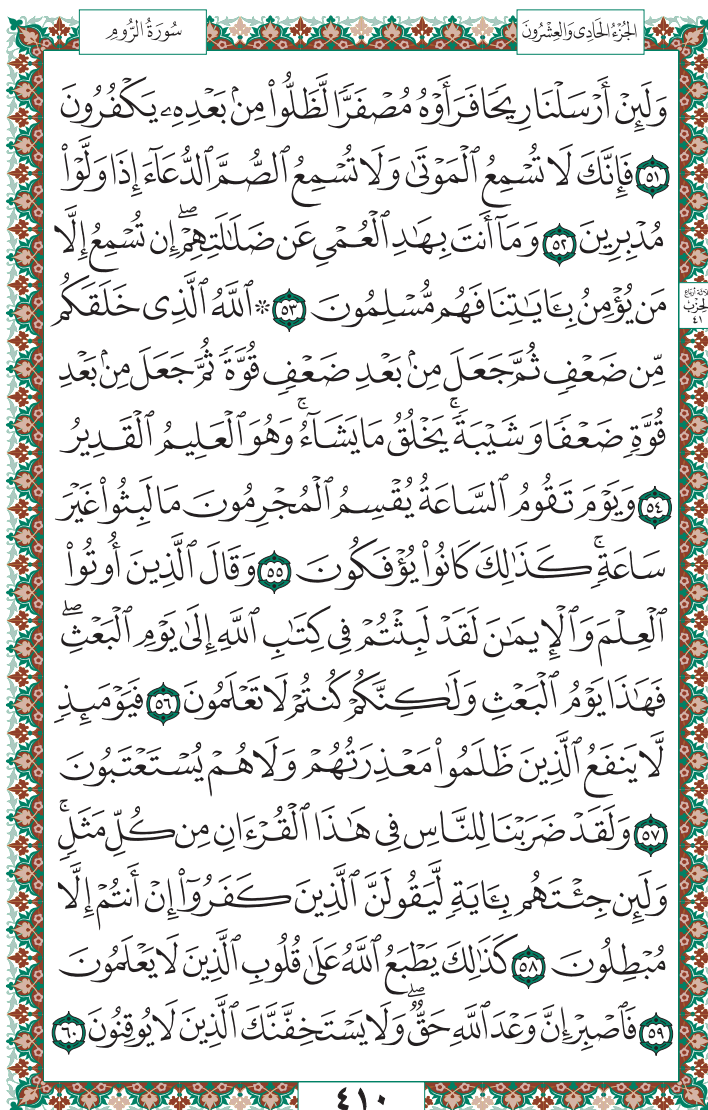 سُورَةُ الرُّومِ
الجُزْءُ الحَادِى وَالعِشْرُونَ
وَلَئِنْ أَرْسَلْنَا رِيحًا فَرَأَوْهُ مُصْفَرًّا لَّظَلُّوا۟ مِنۢ بَعْدِهِۦ يَكْفُرُونَ
٥١ فَإِنَّكَ لَا تُسْمِعُ ٱلْمَوْتَىٰ وَلَا تُسْمِعُ ٱلصُّمَّ ٱلدُّعَآءَ إِذَا وَلَّوْا۟
مُدْبِرِينَ ٥٢ وَمَآ أَنتَ بِهَـٰدِ ٱلْعُمْىِ عَن ضَلَـٰلَتِهِمْ ۖ إِن تُسْمِعُ إِلَّا
مَن يُؤْمِنُ بِـَٔايَـٰتِنَا فَهُم مُّسْلِمُونَ ٥٣ * ٱللَّهُ ٱلَّذِى خَلَقَكُم
الحِزْب
٤١
مِّن ضَعْفٍ ثُمَّ جَعَلَ مِنۢ بَعْدِ ضَعْفٍ قُوَّةً ثُمَّ جَعَلَ مِنۢ بَعْدِ
قُوَّةٍ ضَعْفًا وَشَيْبَةً ۚ يَخْلُقُ مَا يَشَآءُ ۚ وَهُوَ ٱلْعَلِيمُ ٱلْقَدِيرُ
٥٤ وَيَوْمَ تَقُومُ ٱلسَّاعَةُ يُقْسِمُ ٱلْمُجْرِمُونَ مَا لَبِثُوا۟ غَيْرَ
سَاعَةٍ ۚ كَذَٰلِكَ كَانُوا۟ يُؤْفَكُونَ ٥٥ وَقَالَ ٱلَّذِينَ أُوتُوا۟
ٱلْعِلْمَ وَٱلْإِيمَـٰنَ لَقَدْ لَبِثْتُمْ فِى كِتَـٰبِ ٱللَّهِ إِلَىٰ يَوْمِ ٱلْبَعْثِ ۖ
فَهَـٰذَا يَوْمُ ٱلْبَعْثِ وَلَـٰكِنَّكُمْ كُنتُمْ لَا تَعْلَمُونَ ٥٦ فَيَوْمَئِذٍ
لَّا يَنفَعُ ٱلَّذِينَ ظَلَمُوا۟ مَعْذِرَتُهُمْ وَلَا هُمْ يُسْتَعْتَبُونَ
٥٧ وَلَقَدْ ضَرَبْنَا لِلنَّاسِ فِى هَـٰذَا ٱلْقُرْءَانِ مِن كُلِّ مَثَلٍ ۚ
وَلَئِن جِئْتَهُم بِـَٔايَةٍ لَّيَقُولَنَّ ٱلَّذِينَ كَفَرُوٓا۟ إِنْ أَنتُمْ إِلَّا
مُبْطِلُونَ ٥٨ كَذَٰلِكَ يَطْبَعُ ٱللَّهُ عَلَىٰ قُلُوبِ ٱلَّذِينَ لَا يَعْلَمُونَ
٥٩ فَٱصْبِرْ إِنَّ وَعْدَ ٱللَّهِ حَقٌّ ۖ وَلَا يَسْتَخِفَّنَّكَ ٱلَّذِينَ لَا يُوقِنُونَ ٦٠
٤١٠